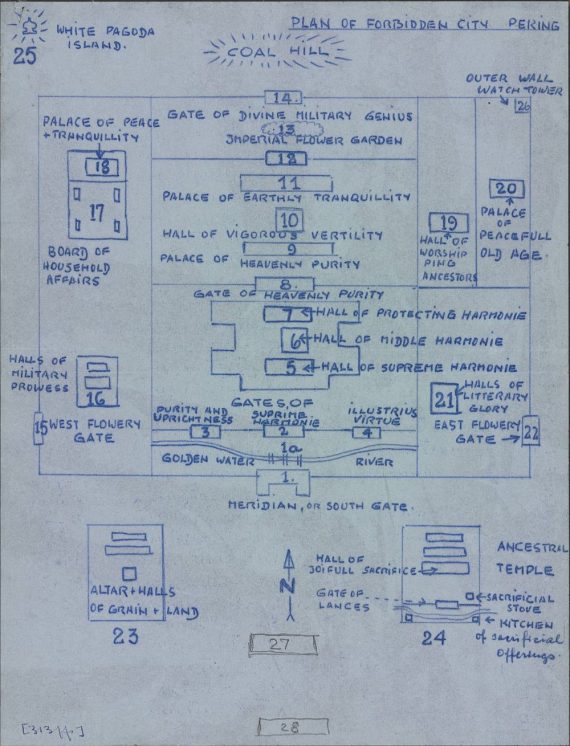 PLAN OF FORBIDDEN CITY PEKING
WHITE PAGODA
ISLAND.
25
COAL HILL
OUTER WALL
WATCH TOWER
26
14.
GATE OF DIVINE MILITARY GENIUS
13
IMPERIAL FLOWER GARDEN
12
PALACE OF PEACE
+ TRANQUILLITY
18
17
BOARD OF
HOUSEHOLD
AFFAIRS
11
PALACE OF EARTHLY TRANQUILLITY
10
HALL OF VIGOROUS VERTILITY
9
PALACE OF HEAVENLY PURITY
19
HALL OF
WORSHIP
PING
ANCESTORS
20
PALACE
OF
PEACEFULL
OLD AGE.
8.
GATE OF HEAVENLY PURITY
7 HALL OF PROTECTING HARMONIE
6 HALL OF MIDDLE HARMONIE
5 HALL OF SUPREME HARMONIE
HALLS OF
MILITARY
PROWESS
16
15 WEST FLOWERY
GATE
21
HALLS OF
LITTERARY
GLORY
EAST FLOWERY
GATE
22
GATES, OF
PURITY AND
UPRICHTNESS
3
SUPRIME
HARMONIE
2
ILLUSTRIUS
VIRTUE
4
1a
GOLDEN WATER RIVER
1.
MERIDIAN, OR SOUTH GATE.
ALTAR + HALLS
OF GRAIN + LAND
23
N
HALL OF
JOIFULL SACRIFICE
GATE OF
LANCES
ANCESTRIL
TEMPLE
SACRIFICIAL
STOVE
KITCHEN
of sacrificial
offerings.
24
27
28
[313 H.]